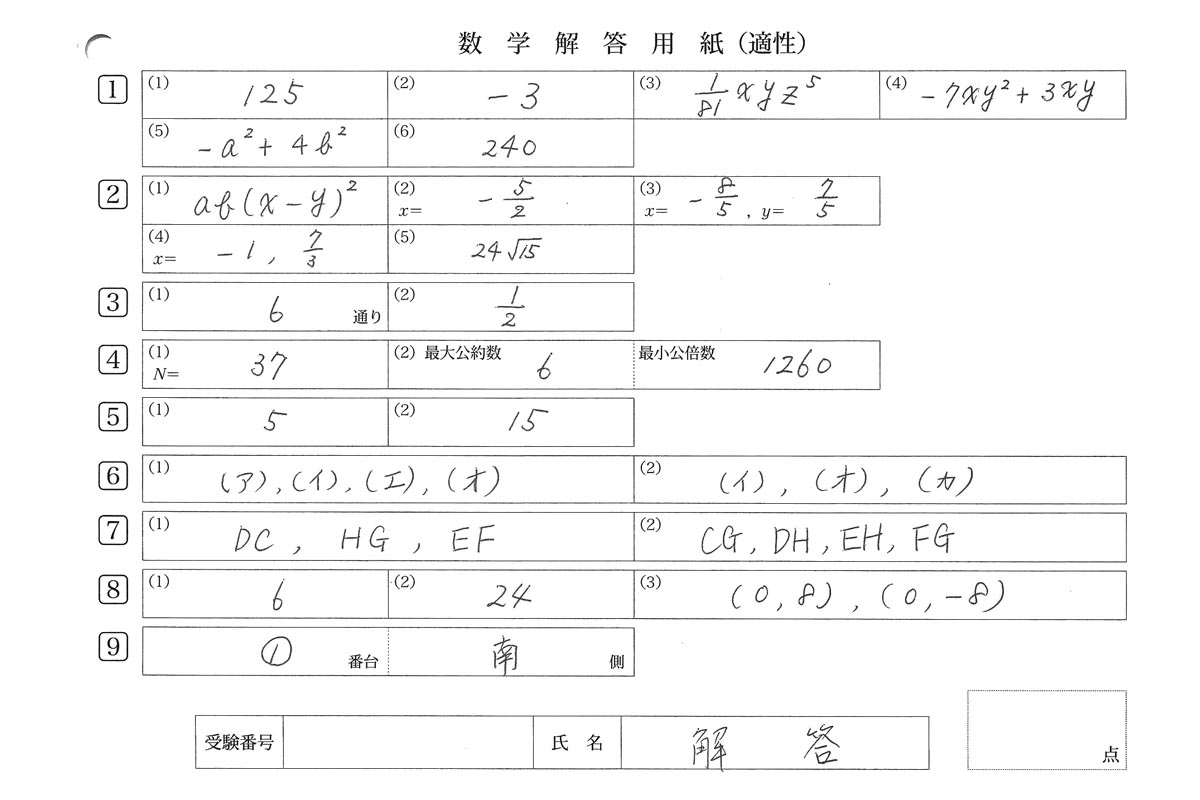 数 学 解 答 用 紙 (適性)
1 (1) 125 (2) -3 (3) 1/81 xyz⁵ (4) -7xy² + 3xy
(5) -a² + 4b² (6) 240
2 (1) ab(x-y)² (2) x= -5/2 (3) x= -8/5 , y= 7/5
(4) x= -1, 7/3 (5) 24√15
3 (1) 6 通り (2) 1/2
4 (1) N= 37 (2) 最大公約数 6 最小公倍数 1260
5 (1) 5 (2) 15
6 (1) (ア), (イ), (エ), (オ) (2) (イ), (オ), (カ)
7 (1) DC , HG , EF (2) CG, DH, EH, FG
8 (1) 6 (2) 24 (3) (0, 8) , (0, -8)
9 ① 番台 南 側
受験番号 氏 名 解 答
点